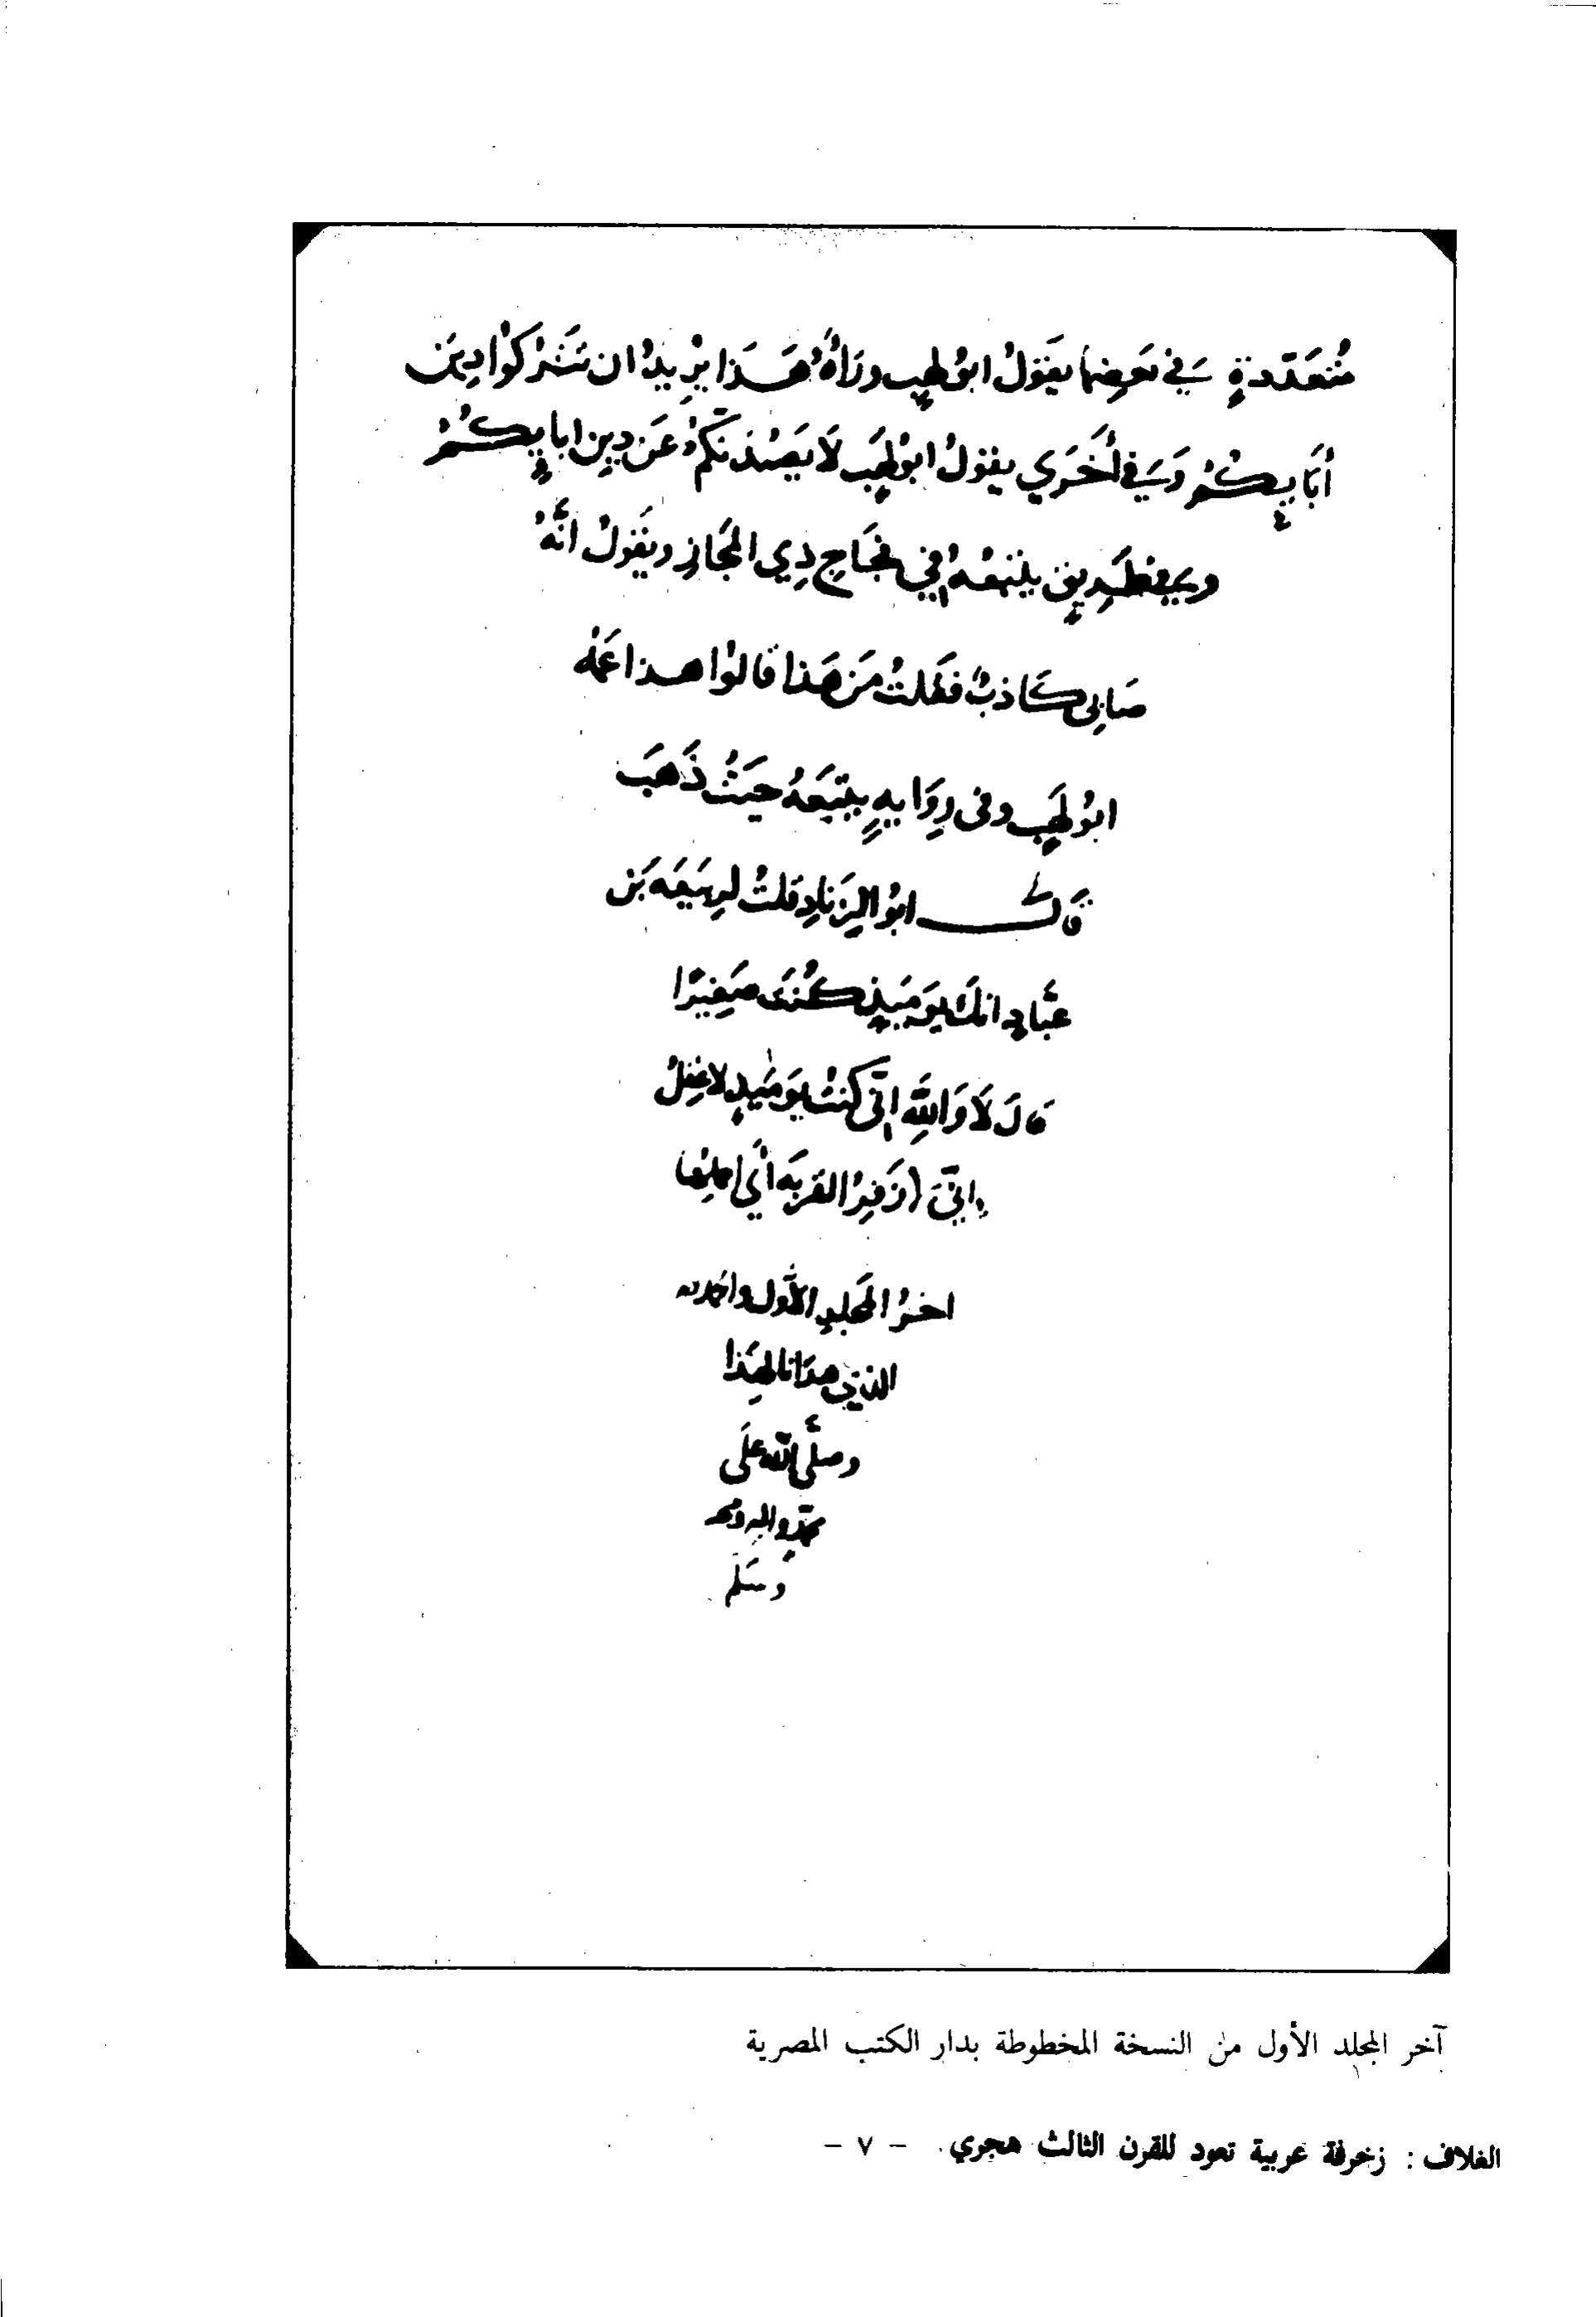 مُتَعَدّدةٍ في بَعضِهَا يَقوُلُ ابوُ لهبٍ وراهُ هَـذَا يُرِيدُ ان تَتْركُوا دِينَ
أبَايِكُمْ وَفي أُخرَي يقوُلُ ابوُ لَهَبٍ لَا يَصُدَنَّكُمْ عَن دِينِ ابايِكُمْ
وفي طَرِيقٍ يتبَعُهُ في فِجَاجِ ذِي المَجَازِ ويقَوُلُ انَّهُ
صَابِى كَاذبٌ فقَلتُ مَن هَذا قالوُا هـذا عَمّهُ
ابوُ لَهَبٍ وفى رِوَايهٍ يتبَعَهُ حيَثُ ذَهَبَ
قَالَ ابوُ الزِنَادِ قلتُ لرِبيعَه بَن
عَبّادٍ انكَ يوَمَيذٍ كُنتَ صَغِيرًا
قالَ لَا وَاللَّهِ اِنّى كُنتُ يوَمَيدٍ لاعقِلُ
اِنّى ازفِرُ القِربَه أي احمِلُها
اخرُ المجَلدِ الأوّل والحمد لله
الذي هدَانا لهِذَا
وصلَّى الله علَى
محمّدٍ واله وصحبه
وَسَلم
آخر المجلد الأول من النسخة المخطوطة بدار الكتب المصرية
الغلاف : زخرفة عربية تعود للقرن الثالث هجري . – ٧ –